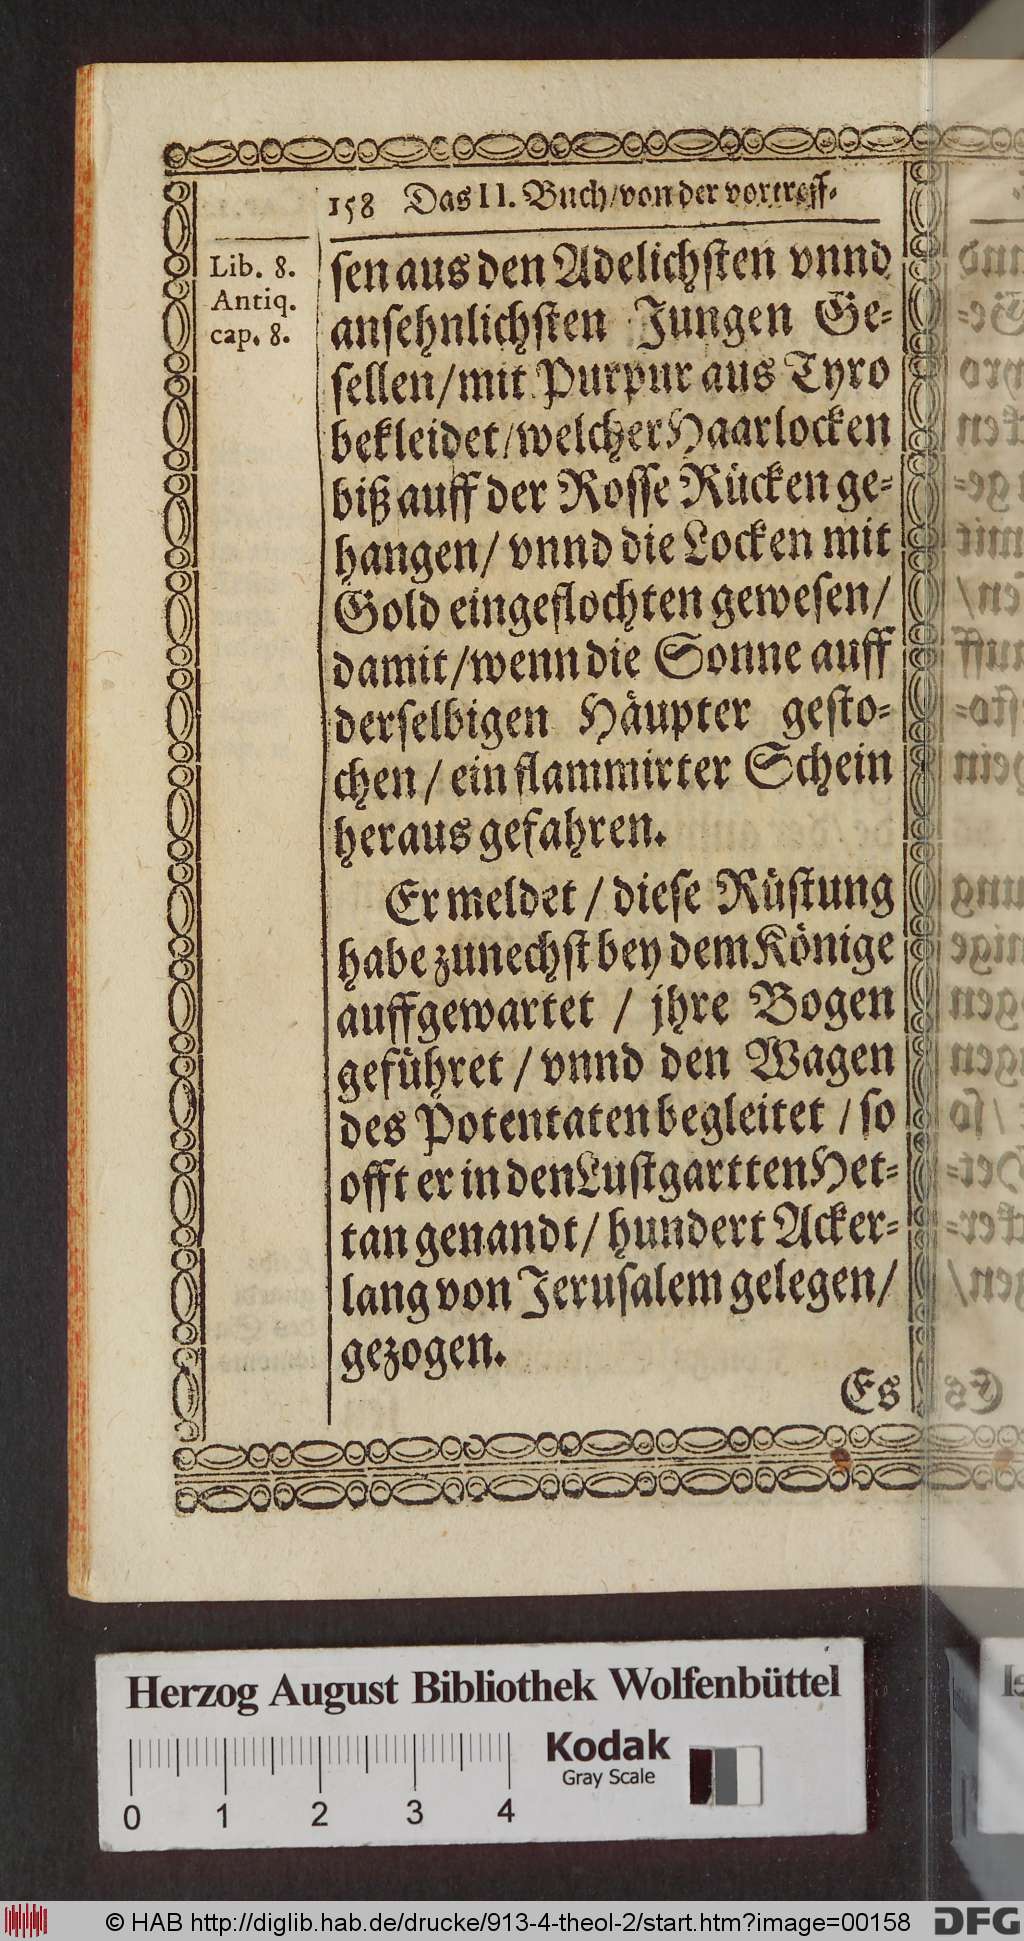 158 Das II. Buch/von der vortreff-
Lib. 8.
Antiq.
cap. 8.
sen aus den Adelichsten vnnd
ansehnlichsten Jungen Ge-
sellen/mit Purpur aus Tyro
bekleidet/welcher Haarlocken
biß auff der Rosse Rücken ge-
hangen/ vnnd die Locken mit
Gold eingeflochten gewesen/
damit/wenn die Sonne auff
derselbigen Häupter gesto-
chen/ ein flammirter Schein
heraus gefahren.
Er meldet / diese Rüstung
habe zunechst bey dem Könige
auffgewartet / jhre Bogen
geführet / vnnd den Wagen
des Potentaten begleitet / so
offt er in den Lustgartten Het-
tan genandt/ hundert Acker-
lang von Jerusalem gelegen/
gezogen.
Es
Herzog August Bibliothek Wolfenbüttel
Kodak
Gray Scale
0 1 2 3 4
© HAB http://diglib.hab.de/drucke/913-4-theol-2/start.htm?image=00158
DFG